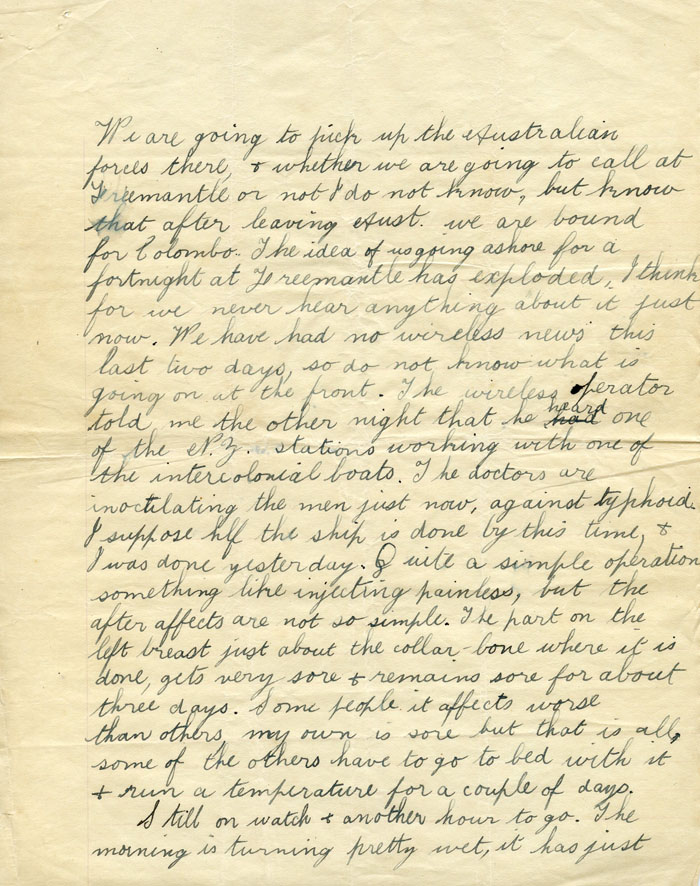 We are going to pick up the Australian
forces there, + whether we are going to call at
Freemantle or not I do not know, but know
that after leaving Aust. we are bound
for Colombo. The idea of us going ashore for a
fortnight at Freemantle has exploded, I think
for we never hear anything about it just
now. We have had no wireless news this
last two days, so do not know what is
going on at the front. The wireless operator
told me the other night that he had heard one
of the N.Z. stations working with one of
the intercolonial boats. The doctors are
inoctilating the men just now, against typhoid.
I suppose hlf the ship is done by this time, +
I was done yesterday. Quite a simple operation
something like injecting painless, but the
after affects are not so simple. The part on the
left breast just about the collar-bone where it is
done, gets very sore + remains sore for about
three days. Some people it affects worse
than others, my own is sore but that is all,
some of the others have to go to bed with it
+ run a temperature for a couple of days.
Still on watch + another hour to go. The
morning is turning pretty wet, it has just